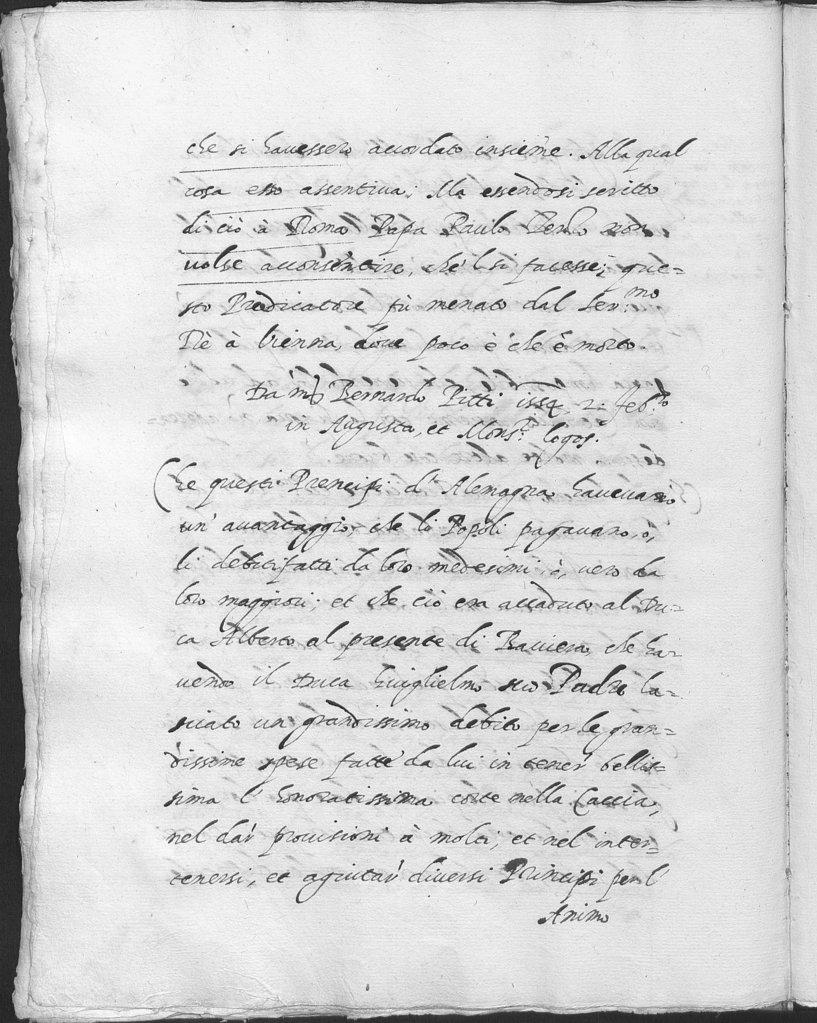 che si havessero accordato insieme. Alla qual
cosa esso assentiva; Ma essendosi scritto
di ciò à Roma Papa Paulo Terzo non
volse acconsentire, che 'l si facesse; que=
sto Predicatore fù menato dal Ser.mo
Rè à Vienna, dove poco è che è morto.
Da m Bernardo Pitti 1554. 2. feb.ro
in Augusta, et Mons.r
Che questi Prencipi d'Alemagna havevano
un' avantaggio, che li Popoli pagavano, o,
li debiti fatti da loro medesimi, ò, vero da
loro maggiori; et che ciò era accaduto al Du=
ca Alberto al presente di Baviera, che ha=
vendo il Duca Guiglielmo suo Padre la=
sciato un grandissimo debito per le gran=
dissime spese fatte da lui in tener bellis=
sima l' honoratissima corte nella Caccia,
nel dar provisioni à molti, et nel inter=
tenersi, et agiutar diversi Principi per l'
Animo